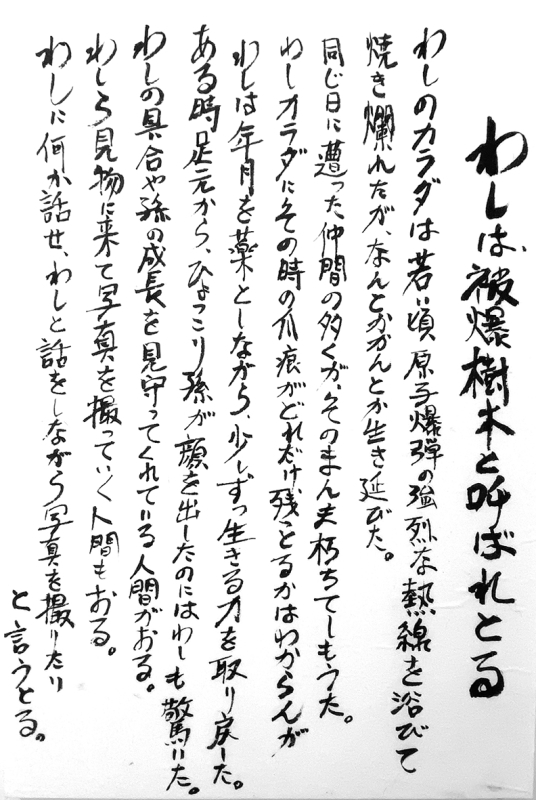 わしは、被爆樹木と呼ばれとる
わしのカラダは若い頃、原子爆弾の強烈な熱線を浴びて
焼き爛れたが、なんとかかんとか生き延びた。
同じ日に遭った仲間の多くが、そのまんま朽ちてしもうた。
わしカラダにその時の爪痕がどれだけ残っとるかはわからんが
わしは年月を薬としながら、少しずつ生きる力を取り戻した。
ある時足元から、ひょっこり孫が顔を出したのにはわしも驚いた。
わしの具合や孫の成長を見守ってくれている人間がおる。
わしら見物に来て写真を撮っていく人間もおる。
わしに何か話せ、わしと話をしながら写真を撮りたい
と言うとる。